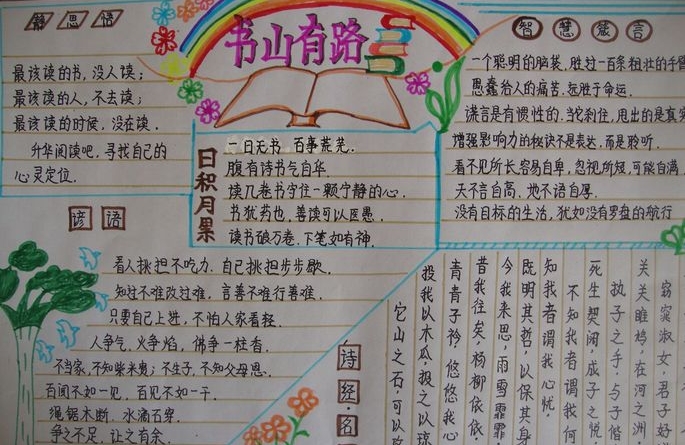 静思语
最该读的书,没人读;
最该读的人,不去读;
最该读的时候,没在读.
升华阅读吧,寻找自己的
心灵定位.
书山有路
智慧箴言
一个聪明的脑袋,胜过一百条粗壮的手臂
愚蠢给人的痛苦,远胜于命运.
谎言是有惯性的.当它刹住,甩出的是真实
增强影响力的秘诀不是表达,而是聆听.
看不见所长,容易自卑,忽视所短,可能自满
天不言自高,地不语自厚.
没有目标的生活,犹如没有罗盘的航行
日积月累
一日无书 百事荒芜.
腹有诗书气自华.
读几卷书守住一颗宁静的心.
书犹药也,善读可以医愚.
读书破万卷,下笔如有神.
谚语
看人挑担不吃力,自己挑担步步歇.
知过不难改过难,言善不难行善难.
只要自己上进,不怕人家看轻.
人争气,火争焰,佛争一柱香.
不当家,不知柴米贵;不生子,不知父母恩.
百闻不如一见,百见不如一干.
绳锯木断,水滴石穿.
争之不足,让之有余.
诗经·名
窈窕淑女,君子好
关关雎鸠,在河之洲,
执子之手,与子偕
死生契阔,成子之悦
不知我者谓我何
知我者谓我心忧,
既明其哲,以保其身
今我来思,雨雪霏霏
昔我往矣,杨柳依依
青青子衿,悠悠我心
投我以木瓜,报之以琼
它山之石,可以攻